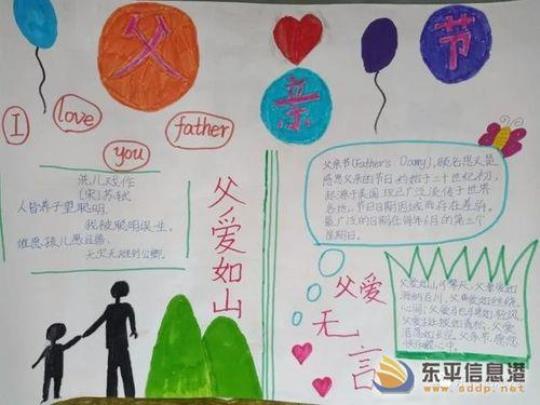 父
亲
节
I
love
you
father
洗儿戏作
(宋)苏轼
人皆养子望聪明,
我被聪明误一生。
惟愿孩儿愚且鲁,
无灾无难到公卿。
父爱如山
父亲节(Father's
感恩父亲的节日 约始于二十世纪初,
起源于美国,现已广泛流传于世界
各地,节日日期因地域而存在差异。
最广泛的日期在每年6月的第三个
星期日。
父爱
无言
父爱如山
海纳百川,
心间;
东平信息港
www.sddp.net